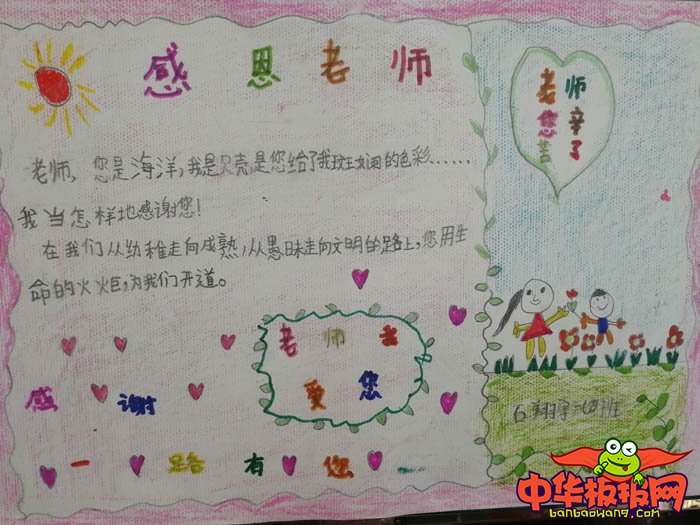 感恩老师
老师，您是海洋，我是贝壳，是您给了我斑斓的色彩……
我当怎样地感谢您！
在我们从幼稚走向成熟，从愚昧走向文明的路上，您用生
命的火炬，为我们开道。
老师
我爱您
感谢
一路有您
老师
您辛
苦了
石翔宇二(4)班
中华板报网
banbaowang.com